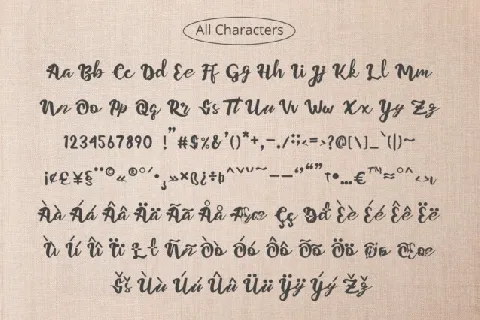 All Characters
Aa Bb Cc Dd Ee Ff Gg Hh Ii Jj Kk Ll Mm
Nn Oo Pp Qq Rr Ss Tt Uu Vv Ww Xx Yy Zz
1234567890 !"#$%&'()*+,-./:;<=>?@[\]_`{|}~
¡¢£¥§¨©«®°´•¸»×ß¿÷þ^˘˝˜–—‘’“”†•…€™≈°^‹›
Àà Áá Ââ Ää Ãã Åå Ææ Çç Đđ Èè Éé Êê Ëë
Ìì Íí Îî Ïï Łł Ññ Òò Óó Ôô Õõ Öö Øø Œœ
Šš Ùù Úú Ûû Üü Ÿÿ Ýý Žž